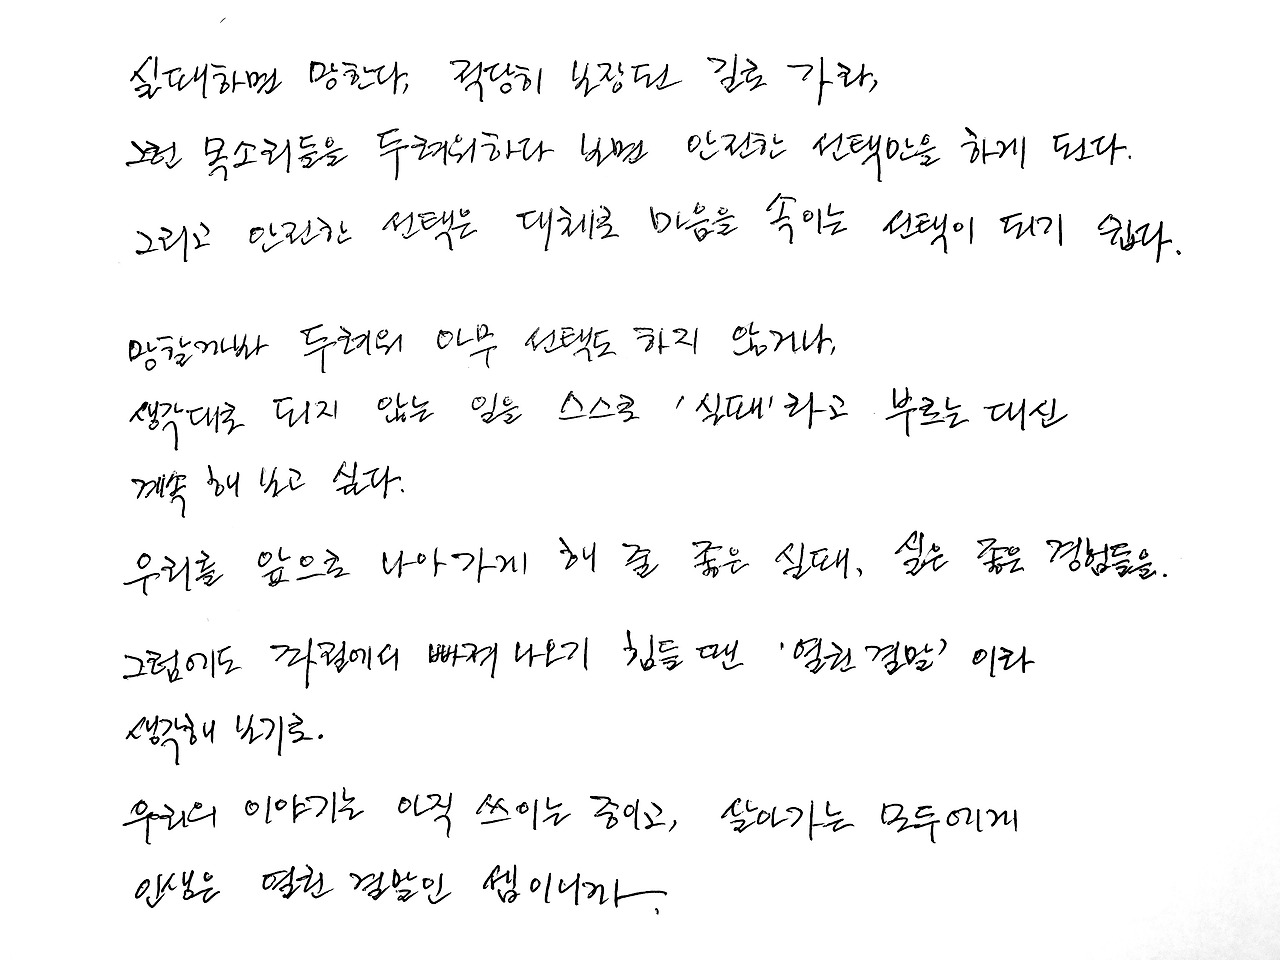 실패하면 망한다, 적당히 보장된 길로 가라,
그런 목소리들을 두려워하다 보면 안전한 선택만을 하게 된다.
그리고 안전한 선택은 대체로 마음을 속이는 선택이 되기 쉽다.
망할까봐 두려워 아무 선택도 하지 않거나,
생각대로 되지 않는 일을 스스로 '실패'라고 부르는 대신
계속 해 보고 싶다.
우리를 앞으로 나아가게 해 줄 좋은 실패, 실은 좋은 경험들을.
그럼에도 좌절에서 빠져 나오기 힘들 땐 '열린 결말' 이라
생각해 보기로.
우리의 이야기는 아직 쓰이는 중이고, 살아가는 모두에게
인생은 열린 결말인 셈이니까.